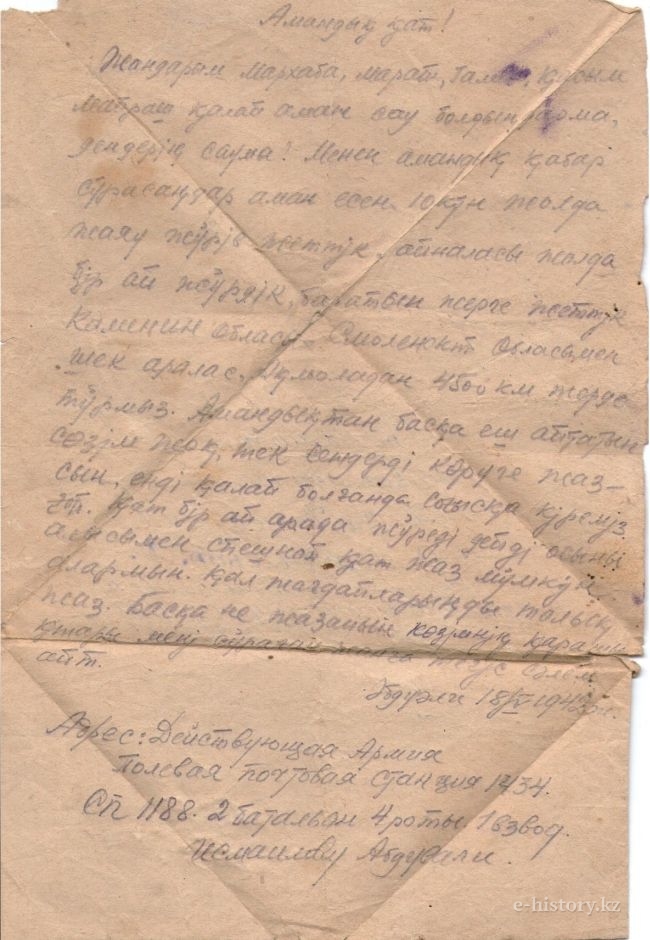 Амандық қат!
Жандарым Мархаба, Марат, Ғали, Құсым
қалай аман сау болдыңдарма,
дендерің саума! Менен амандық қабар
сұрасаңдар аман есен 10 күн жолда
жаяу жүріп жеттук, айналасы жолда
бір ай жүрдік, баратын жерге жеттук
Каменин Обласы Смоленскт Обласымен
шек аралас, 4500 км жерде
тұрмыз. Амандықтан басқа еш айтатын
сөзім жоқ, тек сендерді көруге жаз–
сын, енді қалай болғанда соғысқа кіреміз
деп. Қат бір ай арада жүреді дейді осыны
алысымен спешной қат жаз мүмкүн
алармын. Қал жағдайларыңды толық
жаз. Басқа не жазайын көзімнің қарашы
қтары мені сұраған түгас сәлем
айт.
Абдуәли 18/IV 1942
Адрес: Действующая Армия
Полевая почтовая станция 1434.
СП 1188. 2 батальон 4 роты. 1 взвод.
Исмаилову Абдували.
e-history.kz